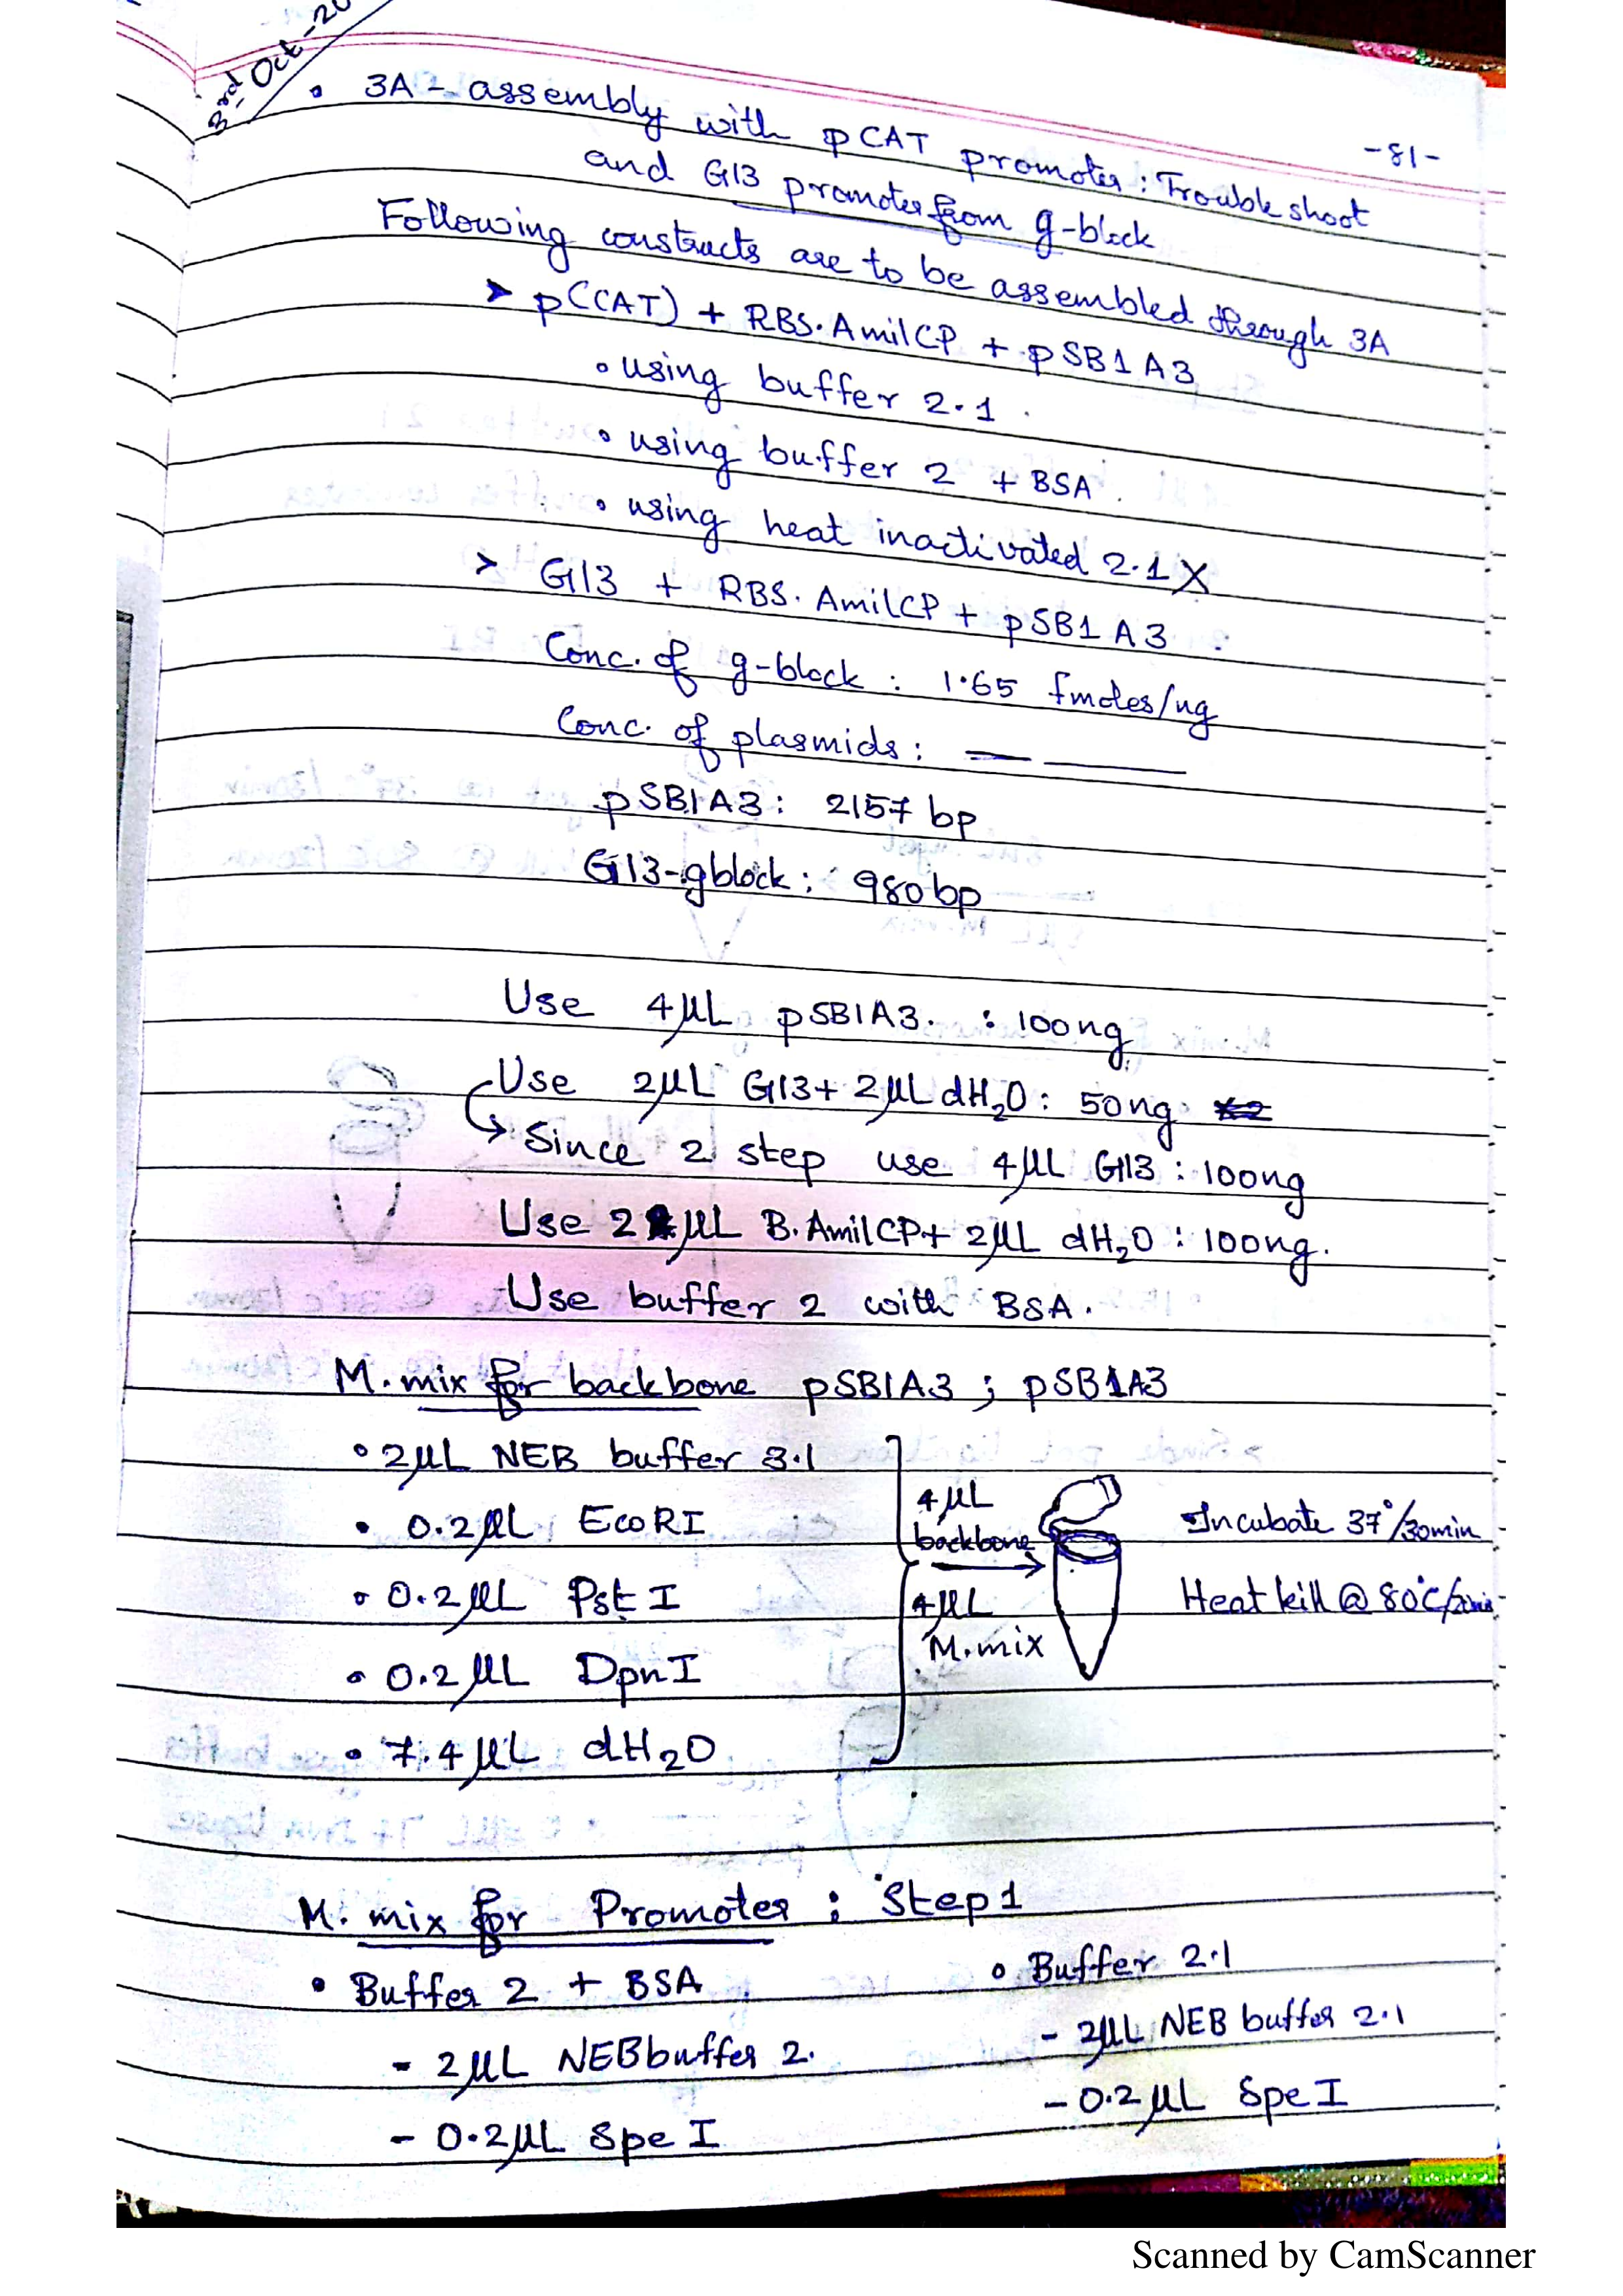 3rd Oct-20
-81-
• 3A - assembly with pCAT promoter : Trouble shoot
and G13 promoter from g-block
Following constructs are to be assembled through 3A
➤ p(CAT) + RBS.AmilCP + pSB1A3
• using buffer 2.1.
• using buffer 2 + BSA.
• using heat inactivated 2.1 X
> G13 + RBS.AmilCP + pSB1A3
Conc. of g-block : 1.65 fmoles/ng
Conc. of plasmids :
pSB1A3 : 2157 bp
G13-gblock : 980bp
Use 4μL pSB1A3. : 100ng
Use 2μL G13 + 2μL dH2O : 50ng.
↳ Since 2 step use 4μL G13 : 100ng
Use 2 μL B.AmilCP + 2μL dH2O : 100ng.
Use buffer 2 with BSA.
M.mix for backbone pSB1A3 ; pSB1A3
• 2μL NEB buffer 3.1
• 0.2μL EcoRI
• 0.2μL PstI
• 0.2μL DpnI
• 7.4μL dH2O
4μL
backbone
4μL
M.mix
Incubate 37°/30min
Heat kill @ 80°C/20min
M.mix for Promoter : Step 1
• Buffer 2 + BSA
- 2μL NEB buffer 2.
- 0.2μL Spe I
• Buffer 2.1
- 2μL NEB buffer 2.1
- 0.2μL Spe I
Scanned by CamScanner